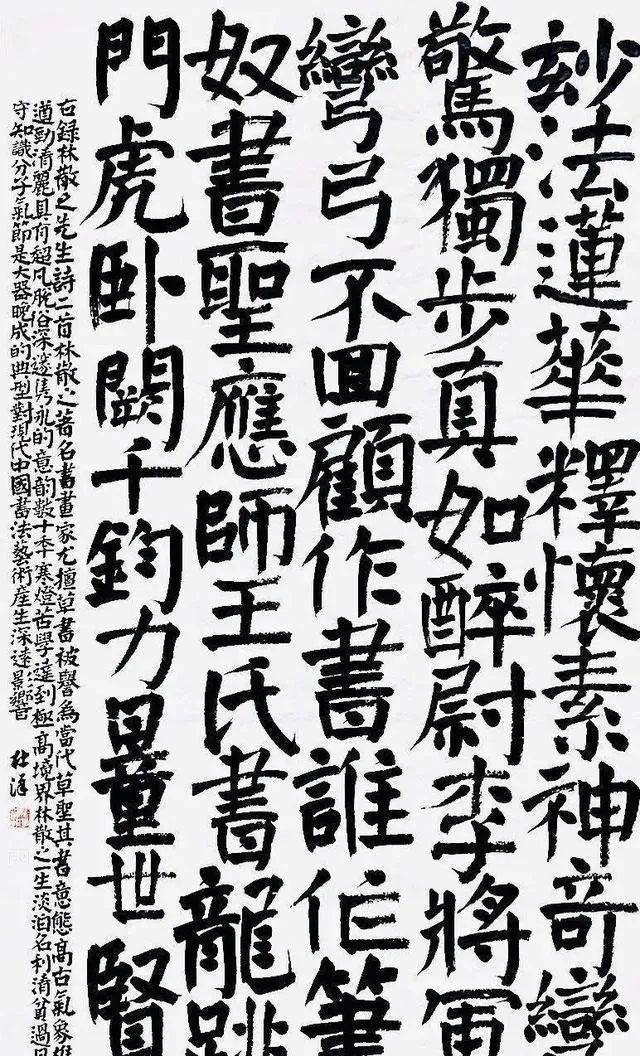 玅法蓮華釋懷素神奇變
驚獨步真如醉尉李將軍
彎弓不回顧作書誰作筆
奴書聖應師王氏書龍跳
門虎卧闕千鈞力量世賢
右錄林散之先生詩二首林散之著名書畫家尤擅草書被譽為當代草聖其書意態高古氣象
遒勁清麗具有超凡脫俗深邃雋永的意韵數十年寒燈苦學達到極高境界林散之一生淡泊名利清貧過
守知識分子氣節是大器晚成的典型對現代中國書法藝術產生深遠影響